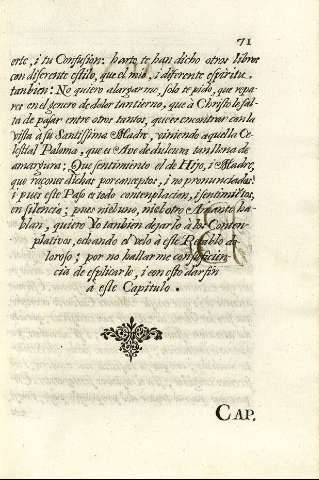 71
erte, i tu Confusion: harto te han dicho otros libros
con diferente estilo, que el mio, i diferente espiritu
tambien: No quiero alargarme, solo te pido, que repa-
res en el genero de dolor tan tierno, que à Christo le fal-
ta de pasar entre otros tantos, que es encontrar con la
vista à su Santissima Madre, viniendo aquella Ce-
lestial Paloma, que es Ave de dulcura tan llena de
amargura: Que sentimiento el de Hijo, i Madre,
que raçones dichas por conceptos, i no pronunciadas!
i pues este Paso es todo contemplacion, i sentimientos,
en silencio; pues ni el uno, ni el otro Amante ha-
blan, quiero Yo tambien dejarlo à los Contem-
plativos, echando el velo à este Retablo do-
loroso; por no hallarme con suficien-
cia de esplicarlo, i con esto dar fin
à este Capitulo.
CAP.